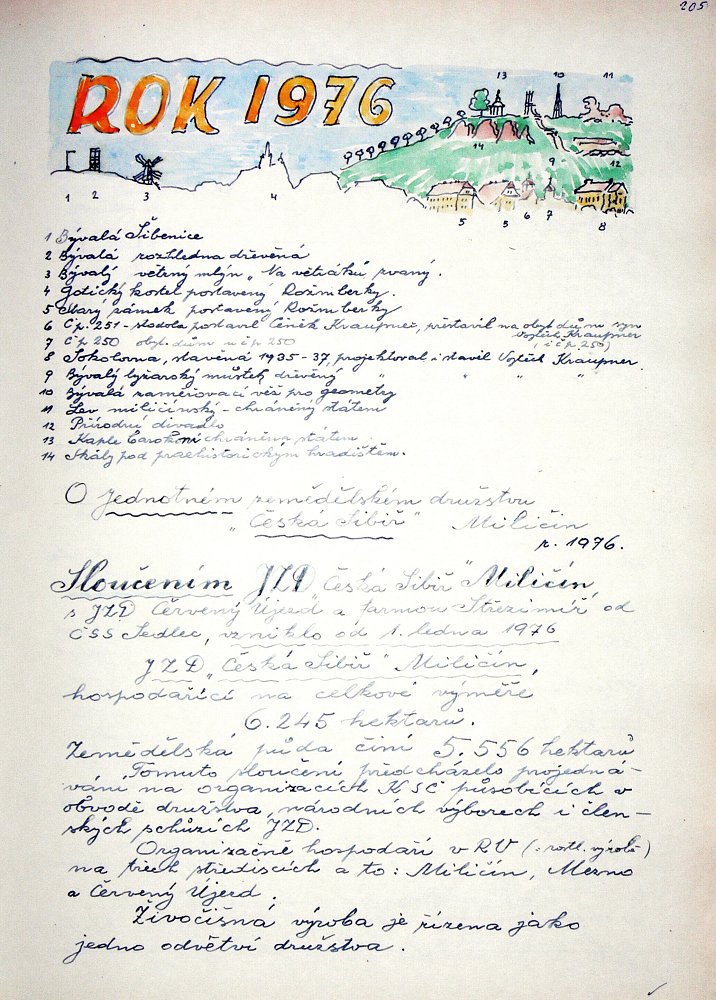 205
ROK 1976
13 10 11
14 9 12
1 2 3 4 5 5 6 7 8
1 Bývalá Šibenice
2 Bývalá rozhledna dřevěná
3 Bývalý větrný mlýn „Na větráků zvaný.
4 Gotický kostel postavený Rožmberky.
5 Starý zámek postavený Rožmberky
6 Čp. 251 - stodola postavil Čeněk Kraupner, přestavil na obyt. dům syn
Vojtěch Kraupner
7 Čp 250 obyt. dům u čp 250
i čp. 250)
8 Sokolovna, stavěná 1935-37, projektoval i stavil Vojtěch Kraupner.
9 Bývalý lyžařský můstek dřevěný " " " "
10 Bývalá zaměřovací věž pro geometry
11 Lev miličínský - chráněný státem
12 Přírodní divadlo
13 Kaple barokní chráněna státem
14 Skály pod praehistorickým hradištěm.
O Jednotném zemědělském družstvu
„Česká Sibiř" Miličín
r. 1976.
Sloučením JZD „Česká Sibiř" Miličín,
s JZD Červený Újezd a farmou Střezimíř od
ČSS Sedlec, vzniklo od 1. ledna 1976
JZD „Česká Sibiř" Miličín,
hospodařící na celkové výměře
6.245 hektarů.
Zemědělská půda činí 5.556 hektarů
Tomuto sloučení předcházelo projedná-
vání na organizacích KSČ působících v
obvodě družstva, národních výborech i člen-
ských schůzích JZD.
Organizačně hospodaří v RV (: rostl. výrobě)
na třech střediscích a to: Miličín, Mezno
a Červený Újezd.
Živočišná výroba je řízena jako
jedno odvětví družstva.